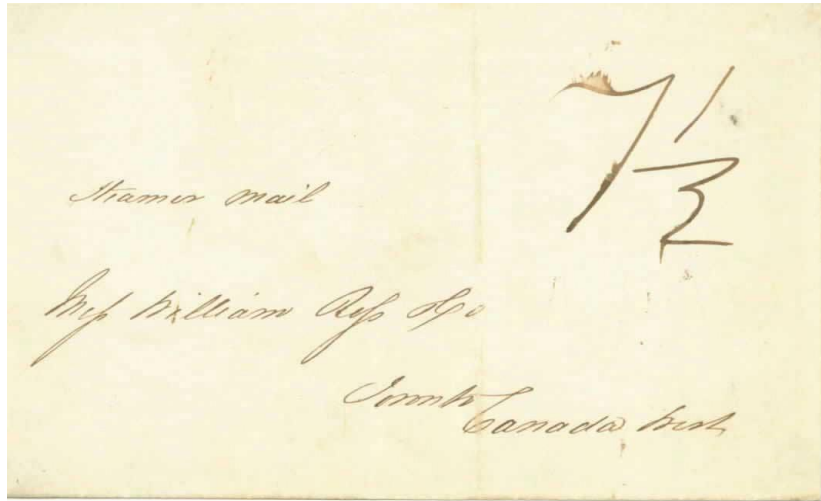 7 1/2
Steamer Mail
Mess William Ross & Co
Toronto
Canada West